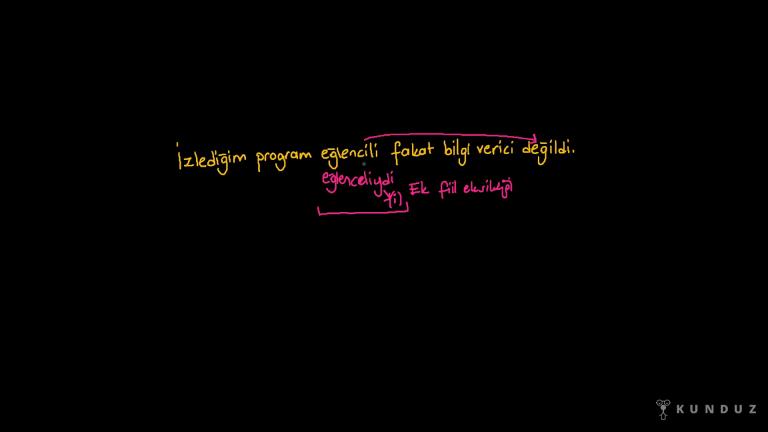 İzlediğim program eğlencili fakat bilgi verici değildi.
eğlenceliydi
(i) Ek fiil eksikliği
KUNDUZ